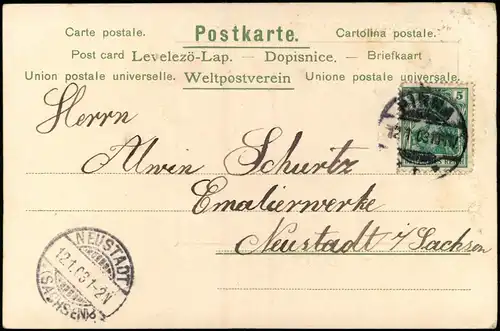 Carte postale. Postkarte. Cartolina postale.
Post card Levelezö-Lap. — Dopisnice. — Briefkaart
Union postale universelle. Weltpostverein Unione postale universale.
5
PIRNA
12.1.03
Herrn
Alwin Schurtz
Emalierwerke
Neustadt i/Sachsen
NEUSTADT
12.1.03.1-2N
(SACHSEN)